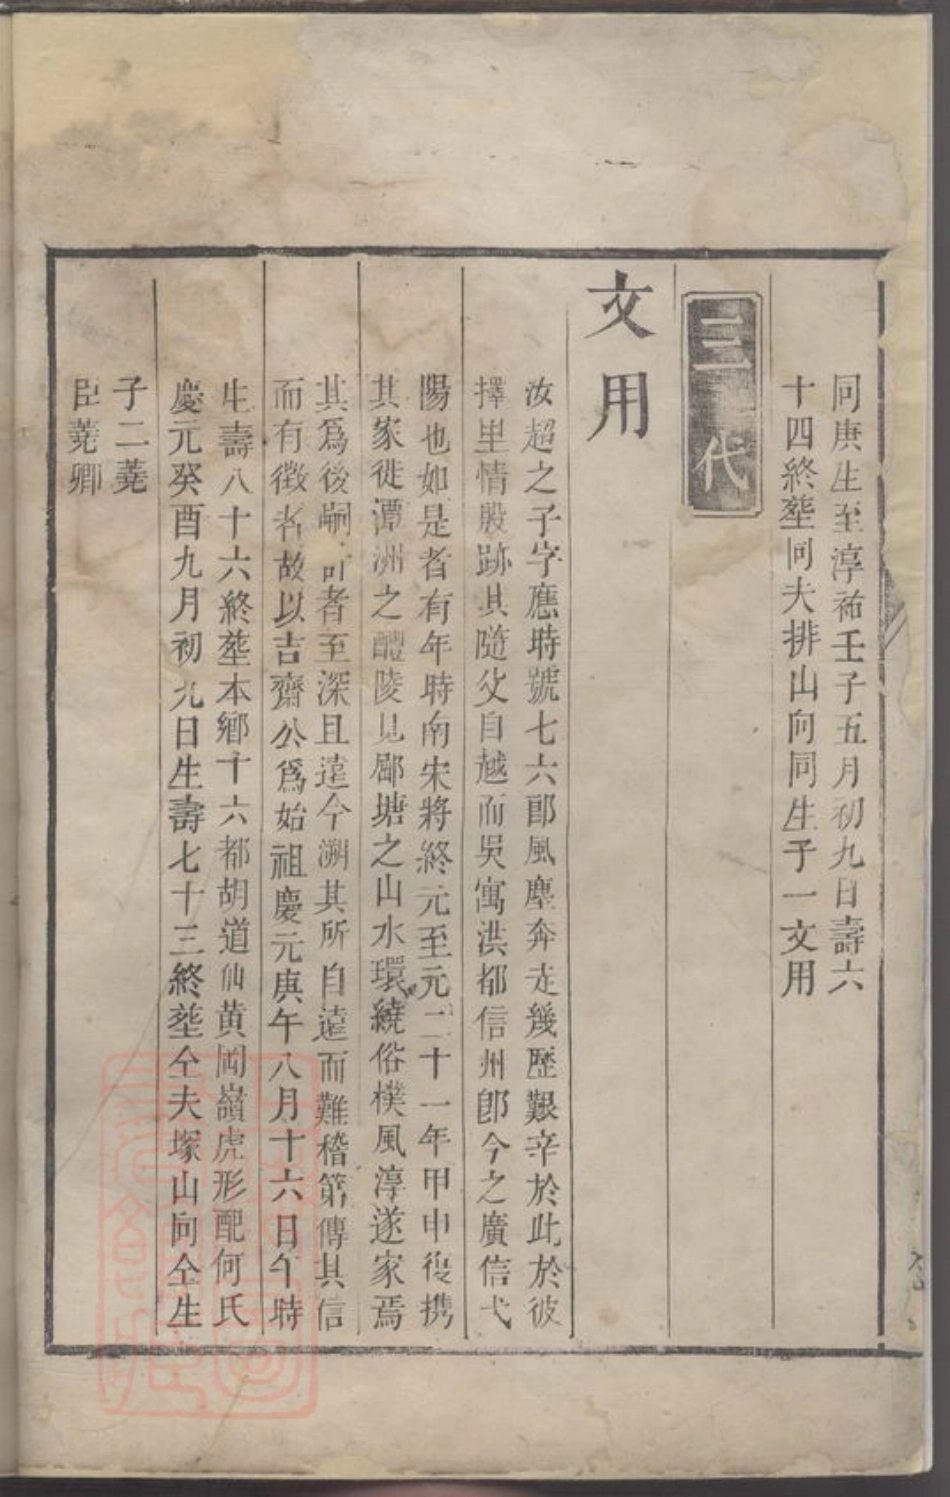 同庚生至淳祐壬子五月初九日壽六
十四終塟同夫排山向同生子一文用
三代
文用
汝超之子字應時號七六郎風塵奔走幾歷艱辛於此於彼
擇里情殷跡其隨父自越而吳寓洪都信州卽今之廣信弋
陽也如是者有年時南宋將終元至元二十一年甲申復携
其家徙潭洲之醴陵見鄢塘之山水環繞俗樸風淳遂家焉
其爲後嗣計者至深且遠今溯其所自遠而難稽第傳其信
而有徵者故以吉齋公爲始祖慶元庚午八月十六日午時
生壽八十六終塟本鄉十六都胡道仙黄岡嶺虎形配何氏
慶元癸酉九月初九日生壽七十三終塟仝夫塚山向仝生
子二蕘
臣蕘卿